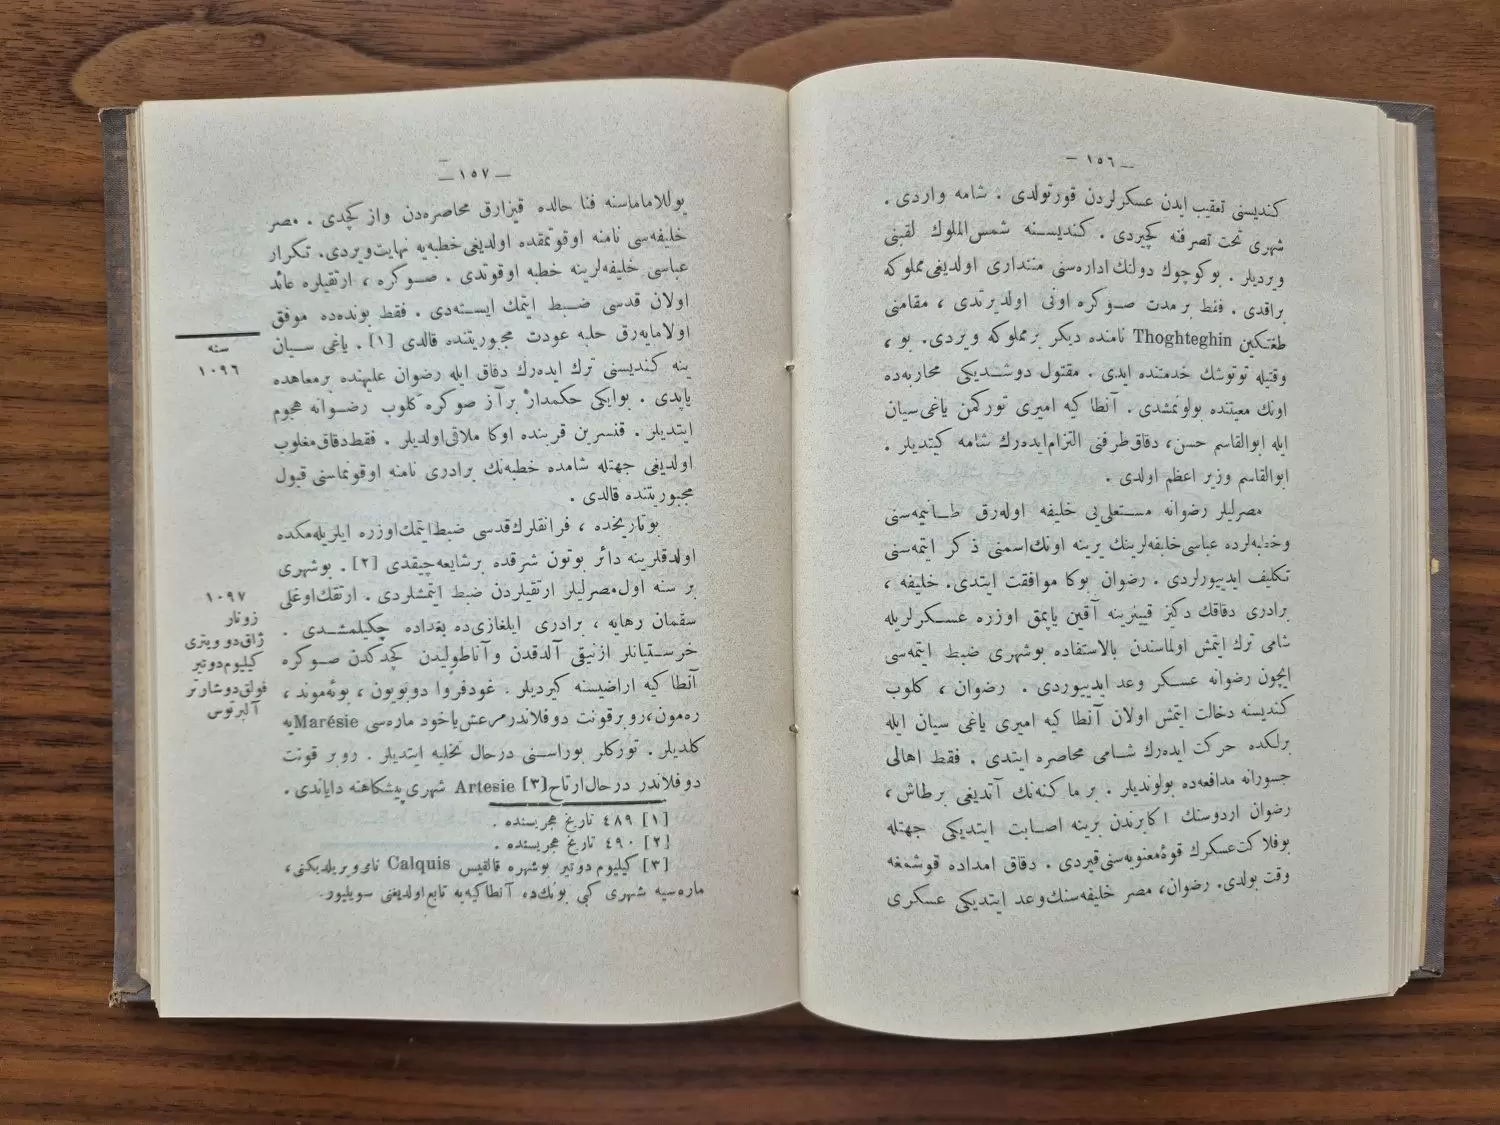 — ١٥٦ —
كنديسنى تعقيب ايدن عسكرلردن قورتولدى . شامه واردى .
شهرى تحت تصرفنه كچيردى . كنديسنه شمس‌الملوك لقبنى
ويرديلر . بوكوچوك دولتك اداره‌سنى متنداری اولديغى مملوكه
براقدى . فقط بر مدت صوكره اونى اولديرتدى ، مقامنى
طغتكين Thoghteghin نامنده ديكر بر مملوكه ويردى. بو ،
وقتيله توتوشك خدمتنده ايدى . مقتول دوشديكى محاربه‌ده
اونك معيتنده بولونمشدى . آنطا كيه اميرى توركمن ياغى‌سيان
ايله ابوالقاسم حسن، دقاق‌طرفنى التزام‌ايده‌رك شامه كيتديلر .
ابوالقاسم وزير اعظم اولدى .
مصرليلر رضوانه مستعلى‌يى خليفه اوله‌رق طانيمه‌سنى
وخطبه‌لرده عباسى خليفه‌لرينك يرينه اونك‌اسمنى ذكر ايتمه‌سنى
تكليف ايدييورلردى . رضوان بوكا موافقت ايتدى. خليفه ،
برادرى دقاقك دكيز قييلرينه آقين ياپمق اوزره عسكرلريله
شامى ترك ايتمش اولماسندن بالاستفاده بوشهرى ضبط ايتمه‌سى
ايچون رضوانه عسكر وعد ايدييوردى . رضوان ، كلوب
كنديسنه دخالت ايتمش اولان آنطا كيه اميرى ياغى سيان ايله
برلكده حركت ايده‌رك شامى محاصره ايتدى . فقط اهالى
جسورانه مدافعه‌ده بولونديلر . بر ما كنه‌نك آتديغى برطاش ،
رضوان اردوسنك اكابرندن برينه اصابت ايتديكى جهتله
بوفلا كت‌عسكرك قوهٔ‌معنويه‌سنى‌قيردى . دقاق امداده قوشمغه
وقت بولدى. رضوان، مصر خليفه‌سنك‌وعد ايتديكى عسكرى
— ١٥٧ —
يوللاماماسنه فنا حالده قيزارق محاصره‌دن واز كچدى . مصر
خليفه‌سى نامنه اوقوتمقده اولديغى خطبه‌يه نهايت‌ويردى. تكرار
عباسى خليفه‌لرينه خطبه اوقوتدى . صوكره ، ارتقيلره عائد
اولان قدسى ضبط ايتمك ايسته‌دى . فقط بونده‌ده موفق
اولامايه‌رق حلبه عودت مجبوريتنده قالدى [١] . ياغى سيان
ينه كنديسنى ترك ايده‌رك دقاق ايله رضوان عليهنده برمعاهده
ياپدى . بوايكى حكمدار برآز صوكره كلوب رضوانه هجوم
ايتديلر . قنسرين قربنده اوكا ملاقى‌اولديلر . فقط‌دقاق‌مغلوب
اولديغى جهتله شامده خطبه‌نك برادرى نامنه اوقونماسنى قبول
مجبوريتنده قالدى .
بوتاريخده ، فرانقلرك‌قدسى ضبط‌ايتمك‌اوزره ايلريله‌مكده
اولدقلرينه دائر بوتون شرقده برشايعه‌چيقدى [٢] . بوشهرى
بر سنه اول‌مصرليلر ارتقيلردن ضبط ايتمشلردى . ارتقك‌اوغلى
سقمان رهايه ، برادرى ايلغازى‌ده بغداده چكيلمشدى .
خرستيانلر ازنيقى آلدقدن وآناطوليدن كچدكدن صوكره
آنطا كيه اراضيسنه كيرديلر . غودفروا دوبويون ، بوئه‌موند ،
ره‌مون، روبرقونت دوفلاندرمرعش‌ياخود ماره‌سى Marésie يه
كلديلر . توركلر بوراسنى درحال تخليه ايتديلر . روبر قونت
دوفلاندر درحال‌ارتاح[٣] Artesie شهرى‌پيشكاهنه داياندى .
[١] ٤٨٩ تاريخ هجريسنده .
[٢] ٤٩٠ تاريخ هجريسنده .
[٣] كيليوم دوتير بوشهره قالقيس Calquis نامى‌ويريلديكنى ،
ماره‌سيه شهرى كبى بونك‌ده آنطا كيه‌يه تابع‌اولديغنى سويليور.
سنه
١٠٩٦
١٠٩٧
زونار
ژاق‌دو ويترى
كيليوم‌دوتير
فولق‌دوشارتر
آلبرتوس